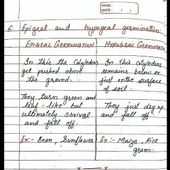 6. Epigeal and hypogeal germination
EPIGEAL GERMINATION
HYPOGEAL GERMINATION
In this the Cotyledons
get pushed above
the ground.
In this cotyledons
remains below or
just in the surface
of soil.
They turn green and
leaf-like but
ultimately
and fall off.
They just dry up
and fall off.
Ex:- Bean, Sunflower
Ex:- Maize, Rice
gram